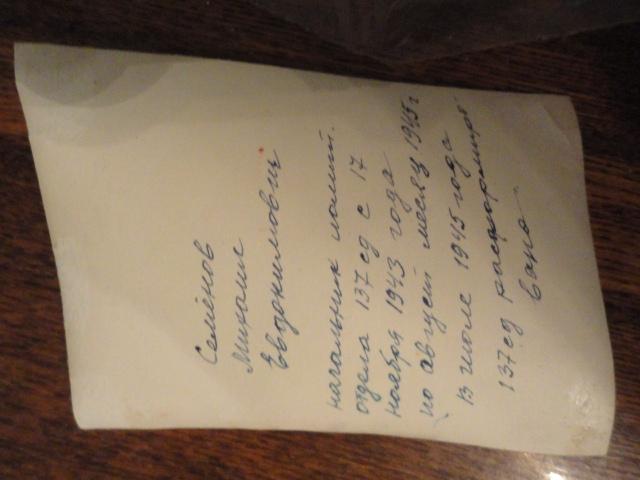 Семёнов
Михаил
Евдокимович
начальник полит.
отдела 137 сд с 17
ноября 1943 года
по август месяц 1945 г
В июле 1945 года
137 сд расформиро
вана